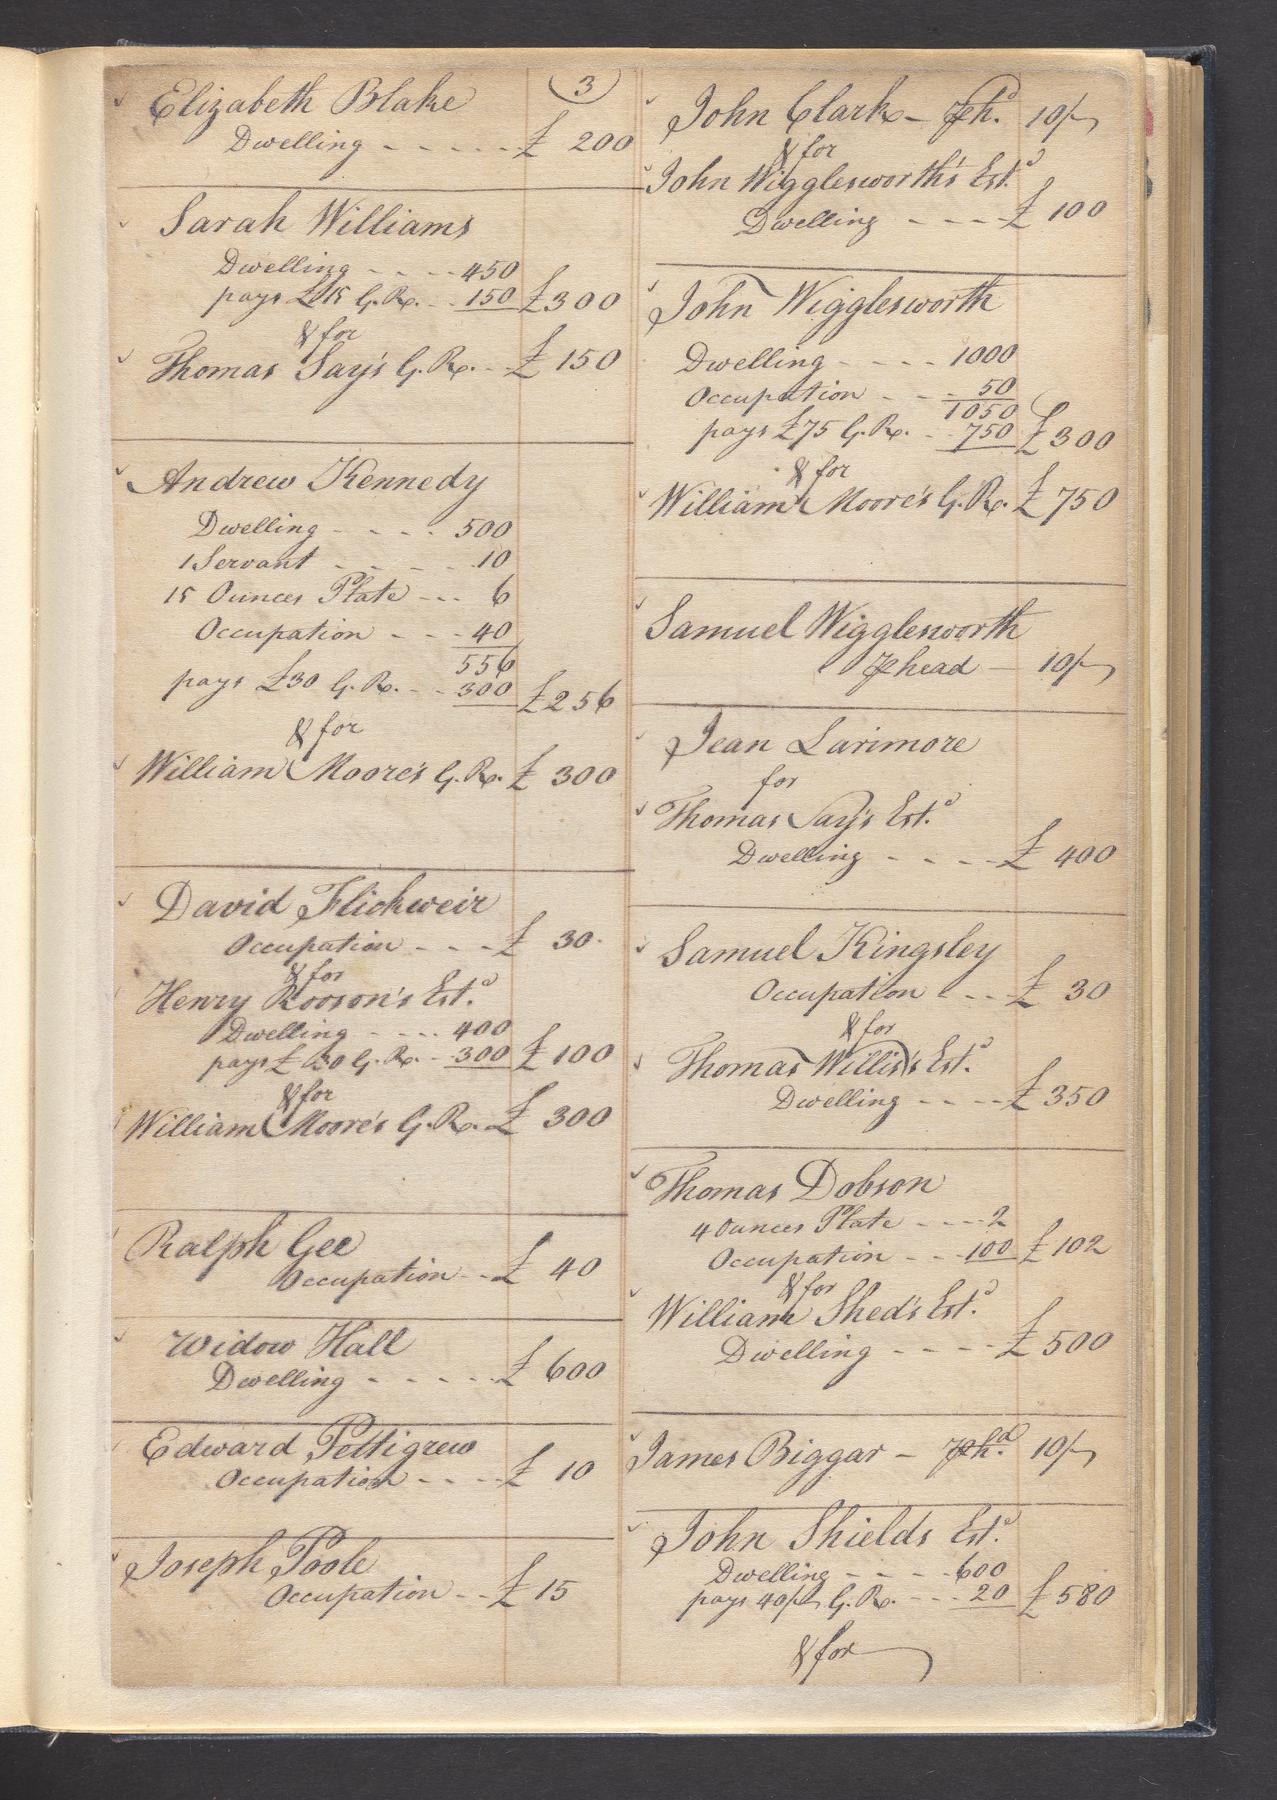 3
Elizabeth Blake
Dwelling - - - - - £ 200
Sarah Williams
Dwelling - - - - 450
pays £15 G. R. - - 150 £300
& for
Thomas Say's G. R. - - £ 150
Andrew Kennedy
Dwelling - - - - 500
1 Servant - - - - - 10
15 Ounces Plate - - - 6
Occupation - - - - 40
556
pays £30 G. R. - - 300 £256
& for
William Moore's G. R. £ 300
David Flickweir
Occupation - - - - £ 30
& for
Henry Rooson's Est.d
Dwelling - - - - 400
pays £ 30 G. R. - 300 £ 100
& for
William Moore's G. R. £ 300
Ralph Gee
Occupation - - £ 40
Widow Hall
Dwelling - - - - - £ 600
Edward Pettigrew
Occupation - - - - £ 10
Joseph Poole
Occupation - - £ 15
John Clark - ⅌ h.d 10/-
& for
John Wigglesworth's Est.d
Dwelling - - - - £ 100
John Wigglesworth
Dwelling - - - - 1000
Occupation - - - 50
1050
pays £75 G. R. - - 750 £300
& for
William Moore's G. R. £750
Samuel Wigglesworth
⅌ head - 10/-
Jean Larimore
for
Thomas Say's Est.d
Dwelling - - - - £ 400
Samuel Kingsley
Occupation - - - £ 30
& for
Thomas Willis's Est.d
Dwelling - - - - £ 350
Thomas Dobson
4 Ounces Plate - - - - 2
Occupation - - - 100 £102
& for
William Shed's Est.d
Dwelling - - - - £ 500
James Biggar - ⅌ h.d 10/-
John Shields Est.d
Dwelling - - - - 600
pays 40/- G. R. - - - 20 £ 580
& for